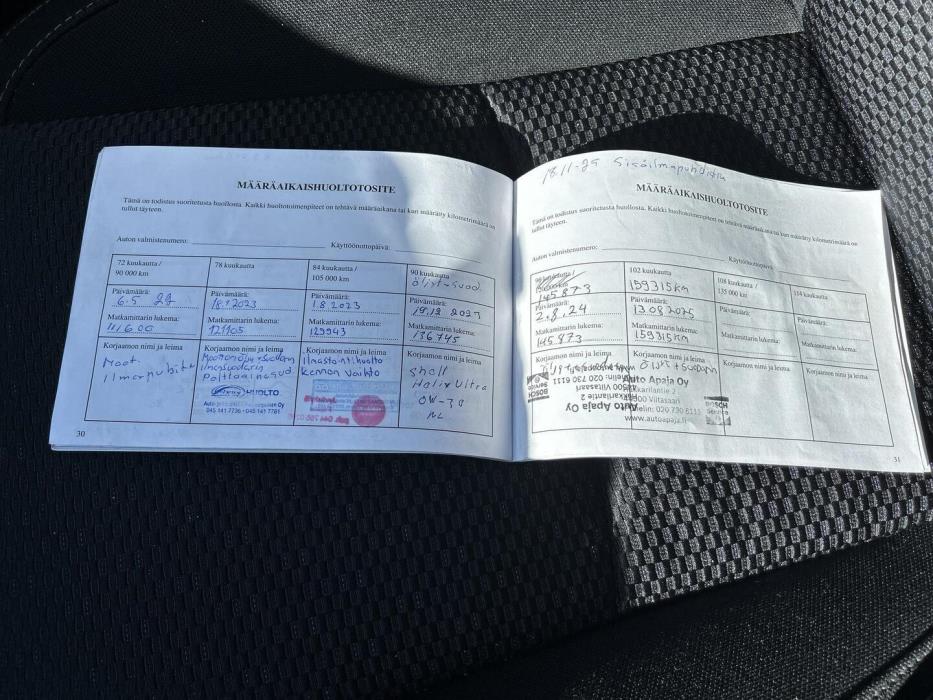 MÄÄRÄAIKAISHUOLTOTOSITE
Tämä on todistus suoritetusta huollosta. Kaikki huoltotoimenpiteet on tehtävä määräaikana tai kun määrätty kilometrimäärä on
tullut täyteen.
Auton valmistenumero: Käyttöönottopäivä:
72 kuukautta /
90 000 km
Päivämäärä:
6.5
Matkamittarin lukema:
111600
Korjaamon nimi ja leima
78 kuukautta
Päivämäärä:
2023
Matkamittarin lukema:
121105
Korjaamon nimi ja leima
Moottoriöljy + suodatin
Ilmansuodatin
HUOLTO
045 141 7736 - 045 141 7781
84 kuukautta /
105 000 km
Päivämäärä:
1.8 2023
Matkamittarin lukema:
129943
Korjaamon nimi ja leima
Ilmastointihuolto
kennon vaihto
90 kuukautta
öljyt-suod.
Päivämäärä:
19.12 2023
Matkamittarin lukema:
136745
Korjaamon nimi ja leima
Shell
Helix Ultra
0W-30
30
18.11-25 Sisäilmapuhdistin
MÄÄRÄAIKAISHUOLTOTOSITE
Tämä on todistus suoritetusta huollosta. Kaikki huoltotoimenpiteet on tehtävä määräaikana tai kun määrätty kilometrimäärä on
tullut täyteen.
Auton valmistenumero: Käyttöönottopäivä:
145873
Päivämäärä:
2.8.24
Matkamittarin lukema:
145873
Korjaamon nimi ja leima
Auto Apaja Oy
102 kuukautta
159315km
Päivämäärä:
13.08 2025
Matkamittarin lukema:
159315km
Korjaamon nimi ja leima
Auto Apaja Oy
Viitasaari
020 730 6111
www.autoapaja.fi
BOSCH
Service
108 kuukautta /
135 000 km
Päivämäärä:
Matkamittarin lukema:
Korjaamon nimi ja leima
114 kuukautta
Päivämäärä:
Matkamittarin lukema:
Korjaamon nimi ja leima
31